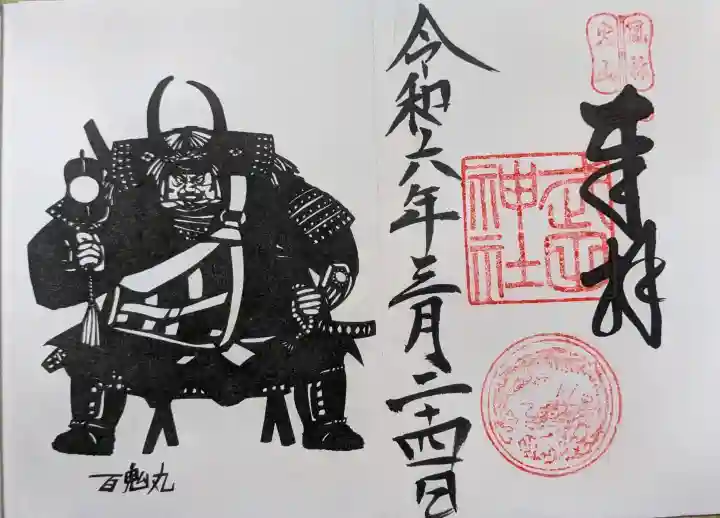 奉拝
武田
神社
令和六年三月二十四日
百鬼丸